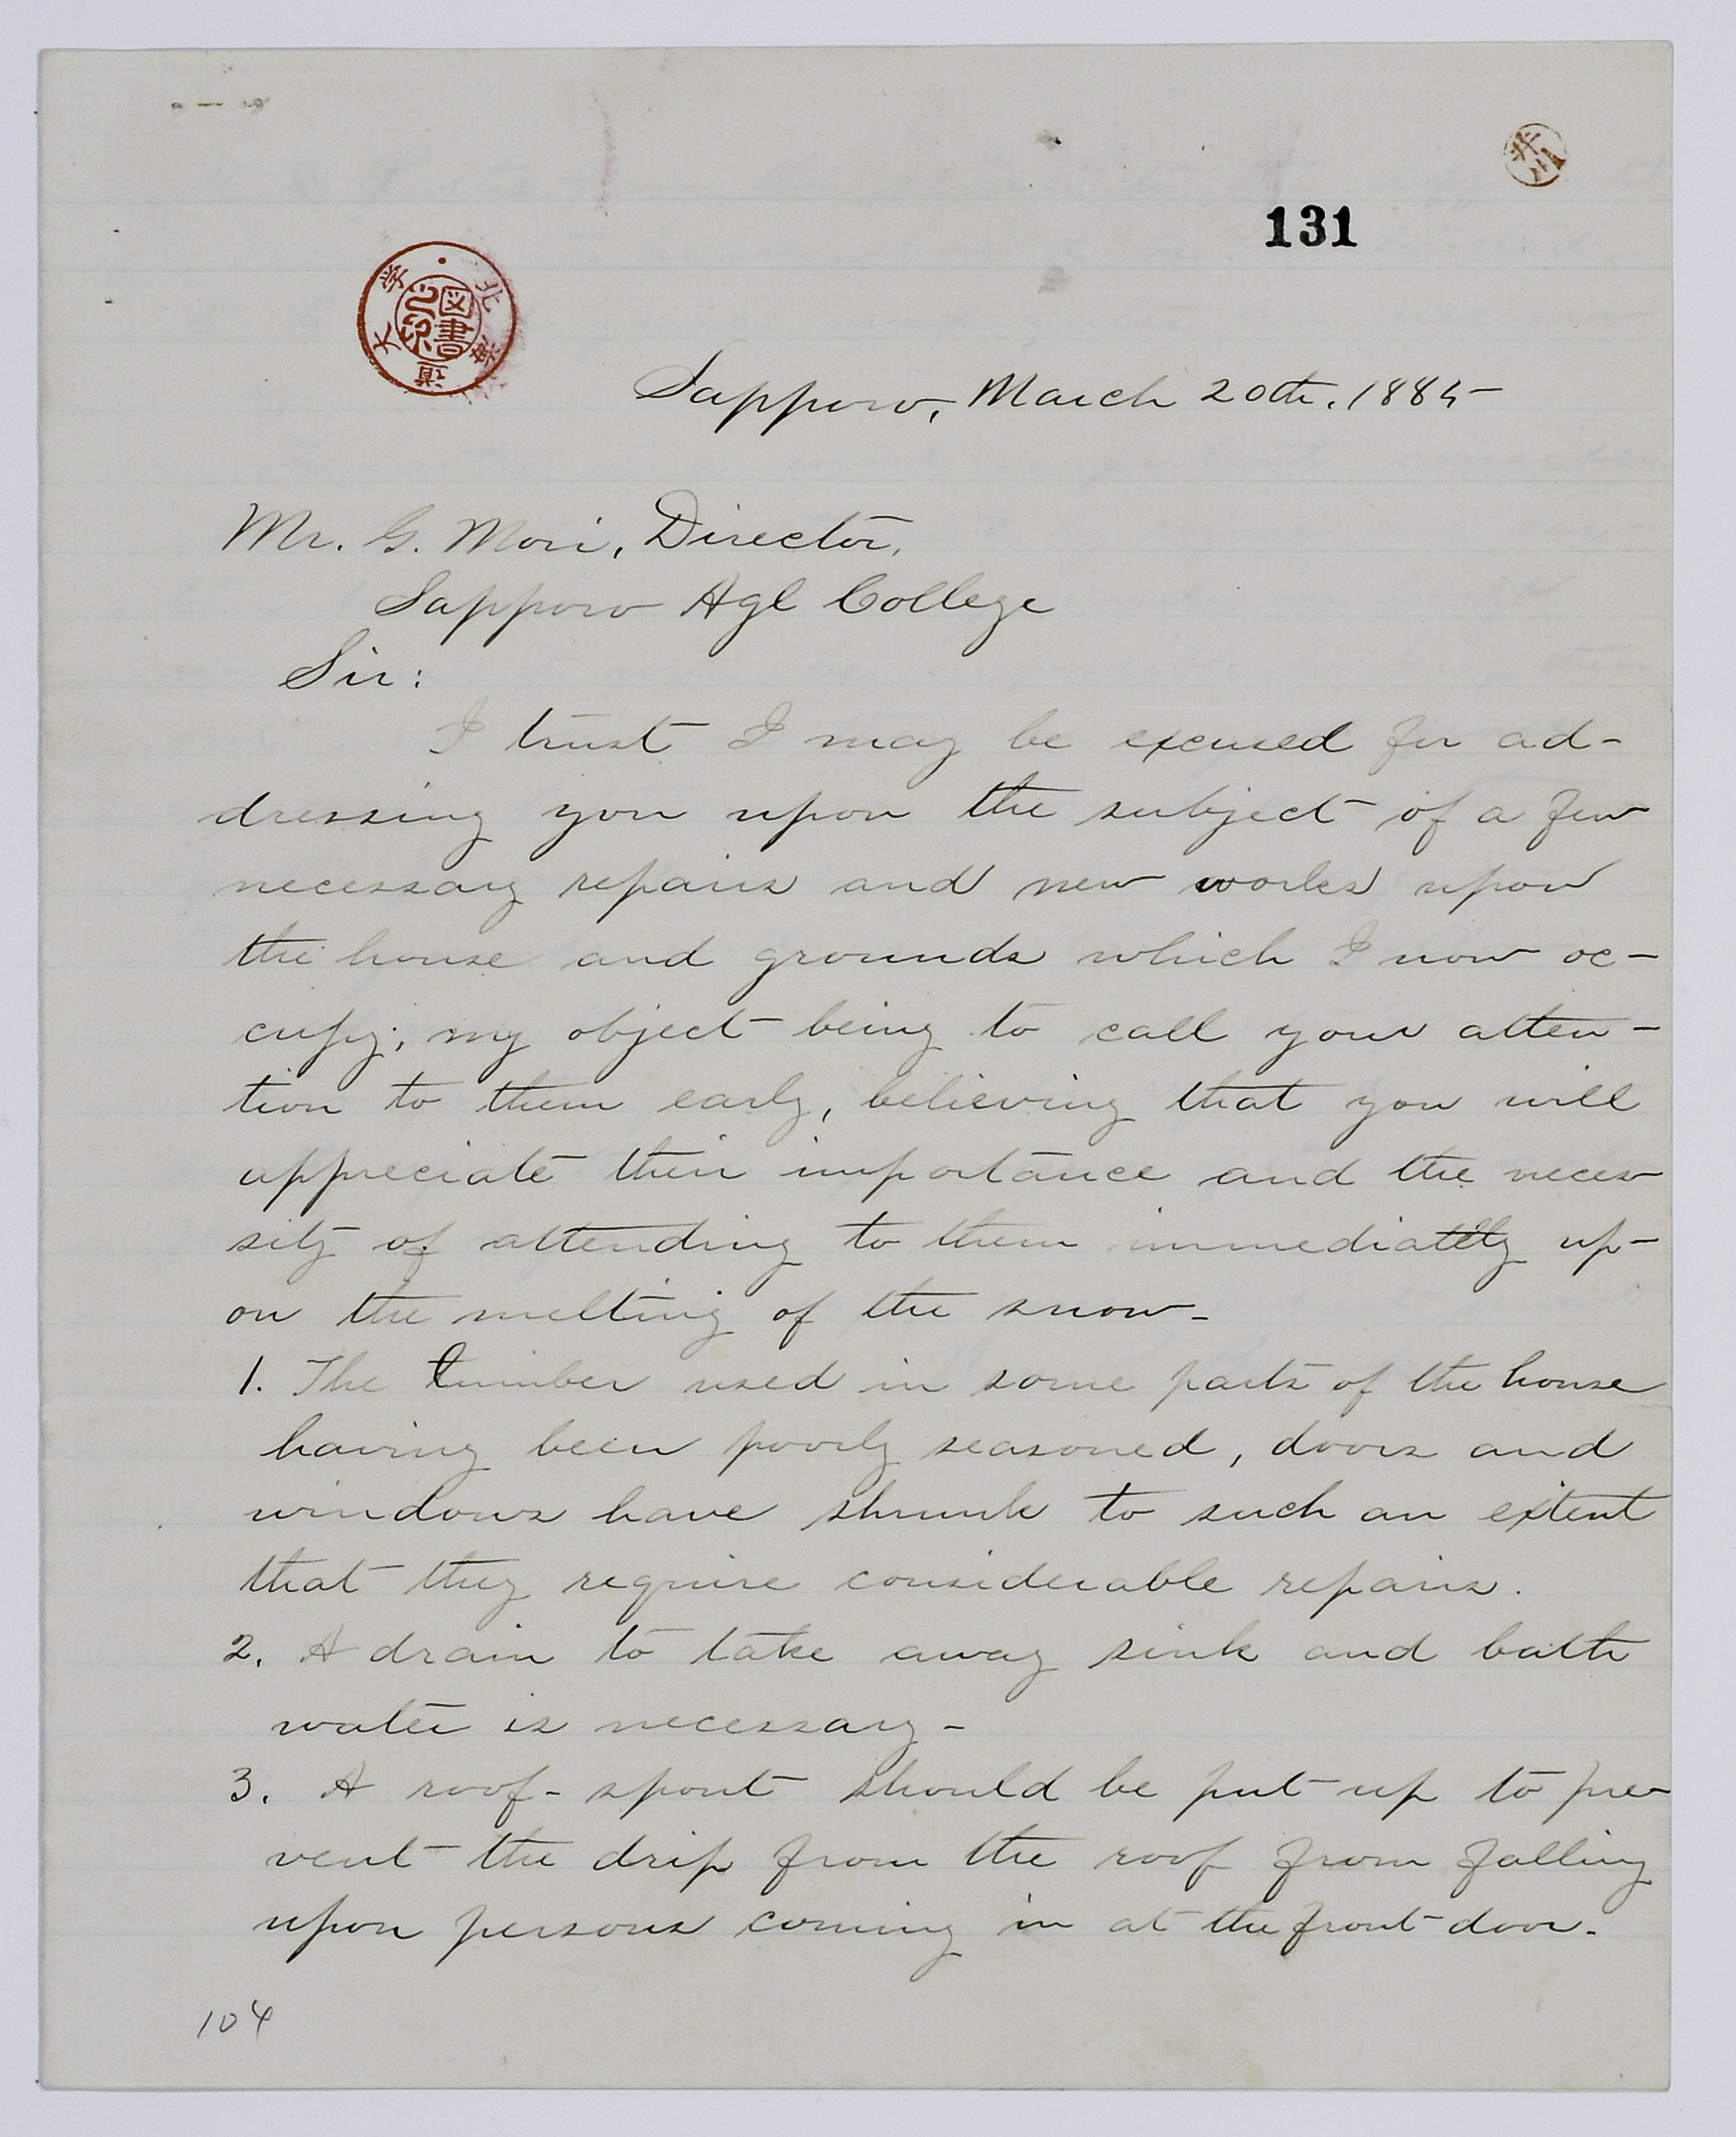 井川
131
北海道大学
図書之印
Sapporo, March 20th. 1885
Mr. G. Mori, Director,
Sapporo Agl College
Sir:
I trust I may be excused for ad-
dressing you upon the subject of a few
necessary repairs and new works upon
the house and grounds which I now oc-
cupy; my object being to call your atten-
tion to them early, believing that you will
appreciate their importance and the neces-
sity of attending to them immediately up-
on the melting of the snow-
1. The timber used in some parts of the house
having been poorly seasoned, doors and
windows have shrunk to such an extent
that they require considerable repairs.
2. A drain to take away sink and bath
water is necessary-
3. A roof-spout should be put up to pre-
vent the drip from the roof from falling
upon persons coming in at the front door.
104